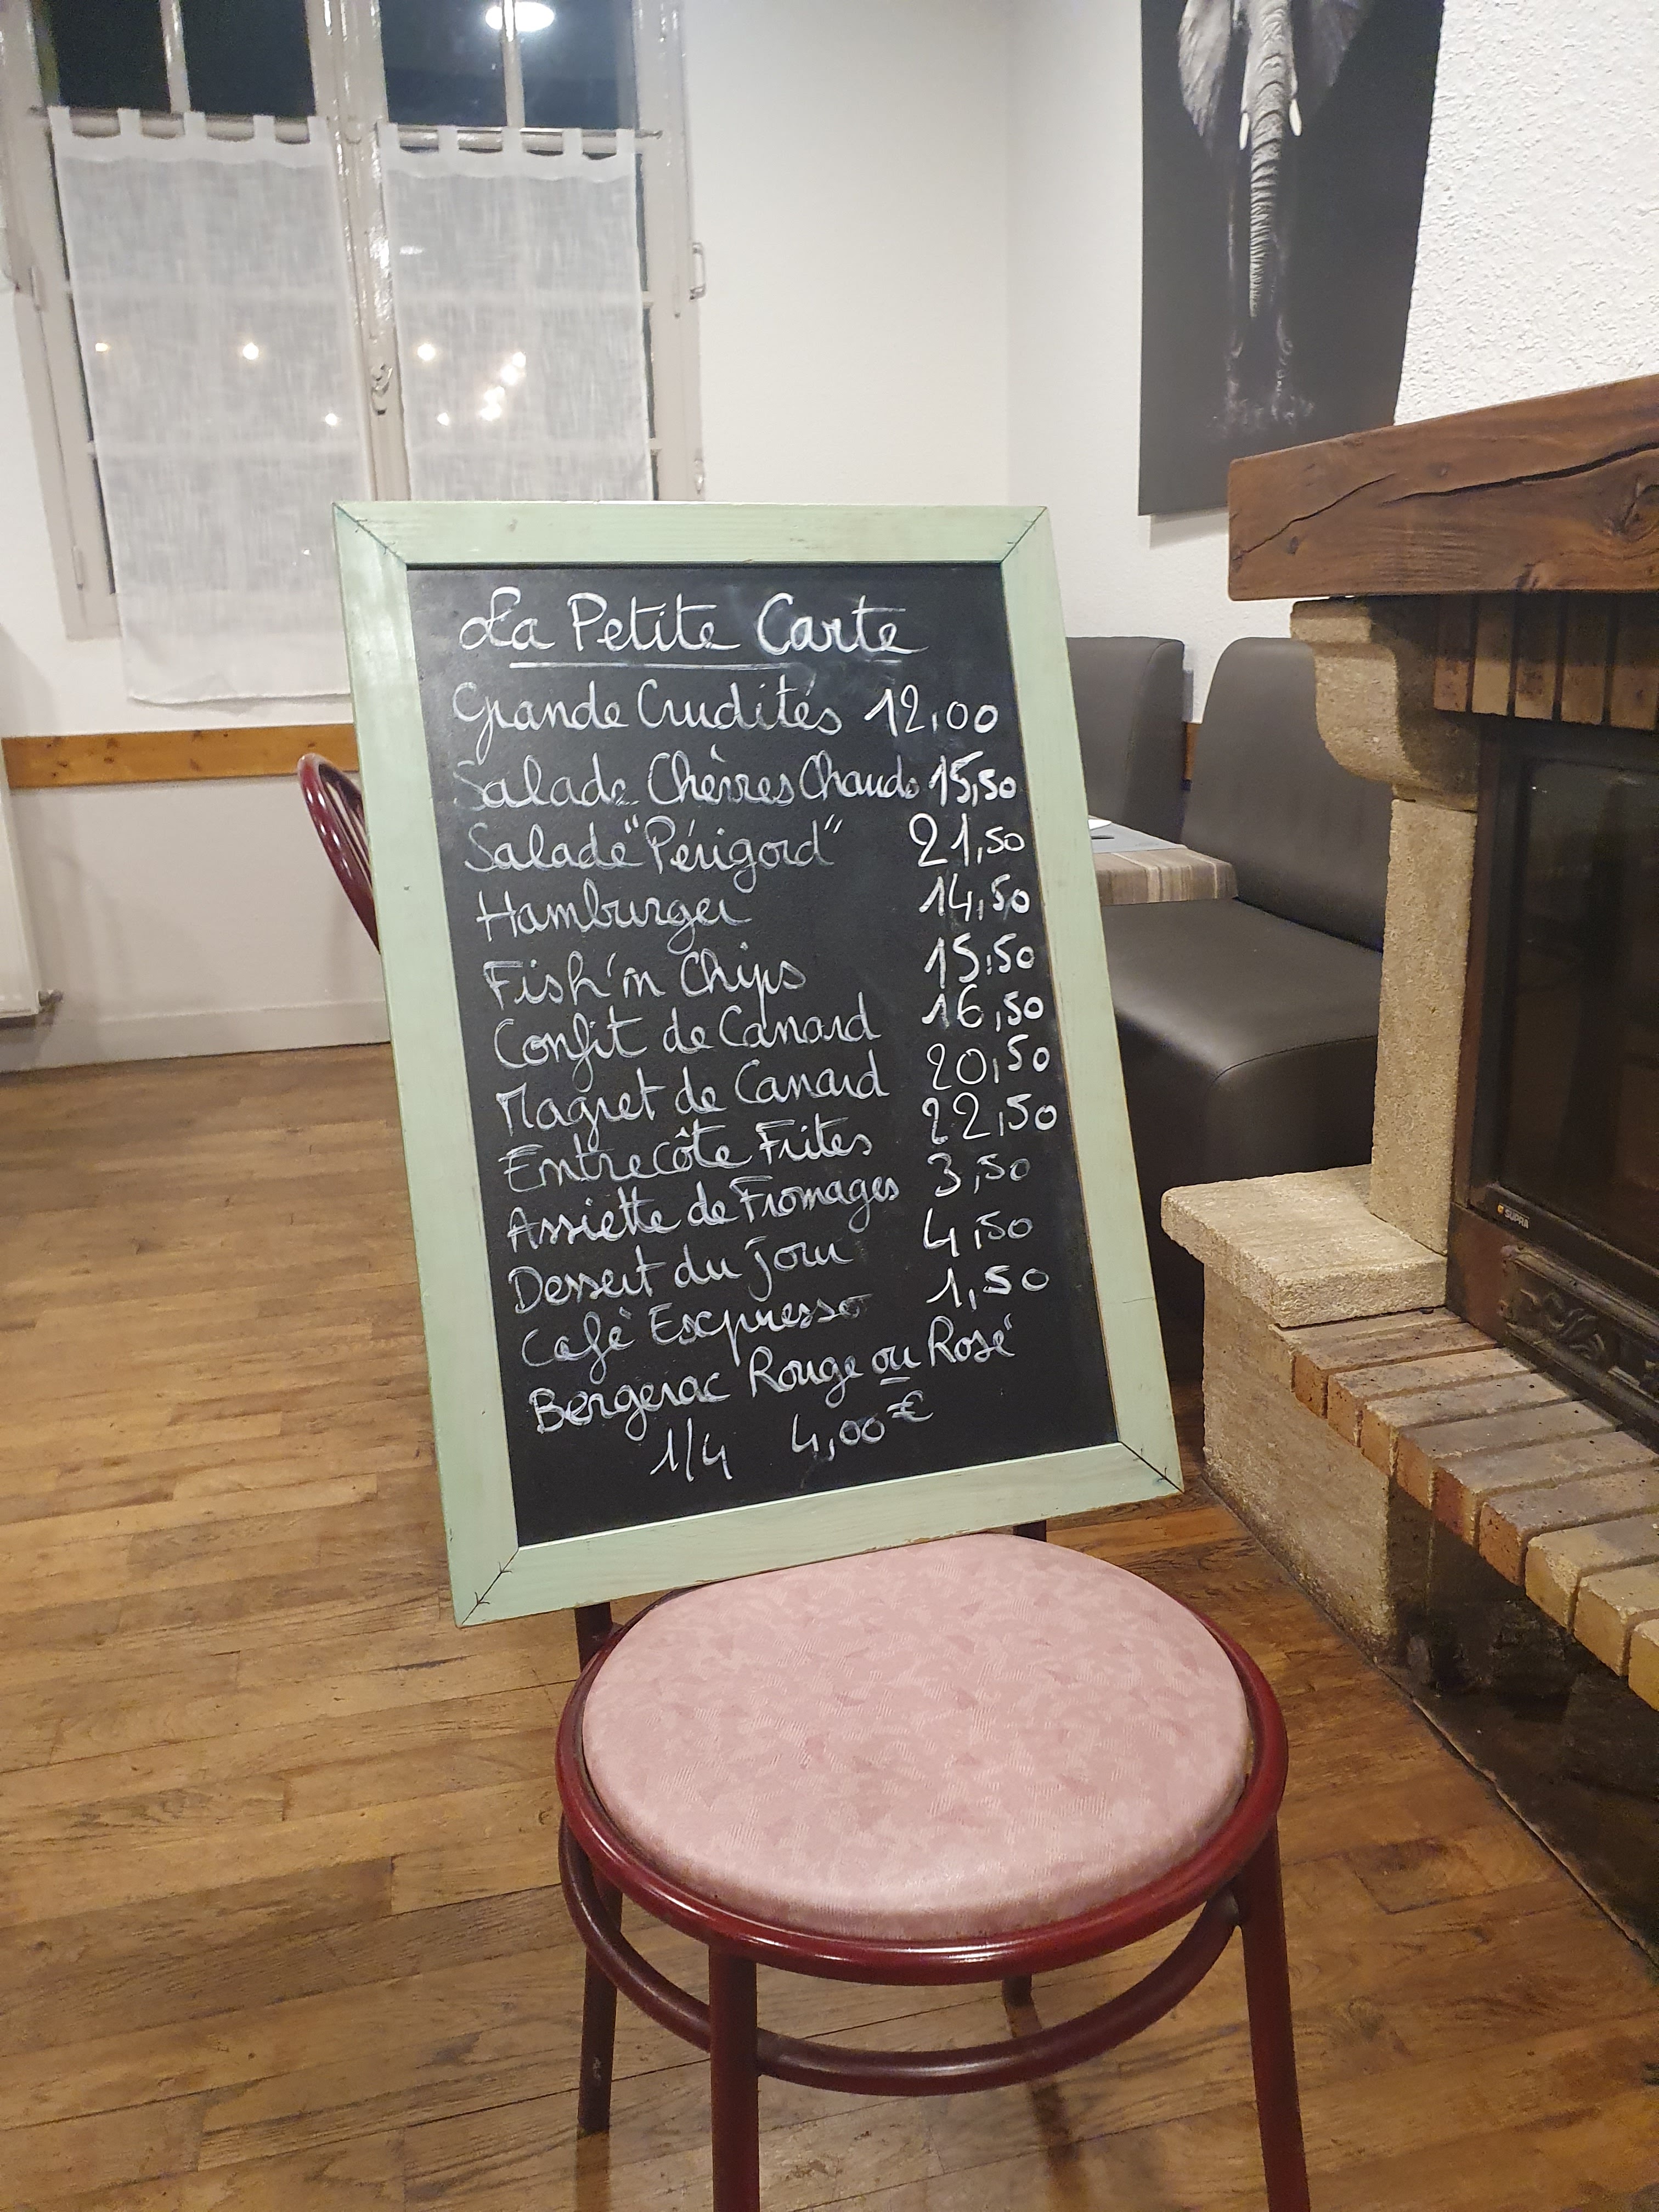 La Petite Carte
Grande Crudités 12,00
Salade Chèvres Chauds 15,50
Salade "Périgord" 21,50
Hamburger 14,50
Fish'n Chips 15,50
Confit de Canard 16,50
Magret de Canard 20,50
Entrecôte Frites 22,50
Assiette de Fromages 3,50
Dessert du jour 4,50
Café Excpresso 1,50
Bergerac Rouge ou Rosé
1/4 4,00€
SUPRA